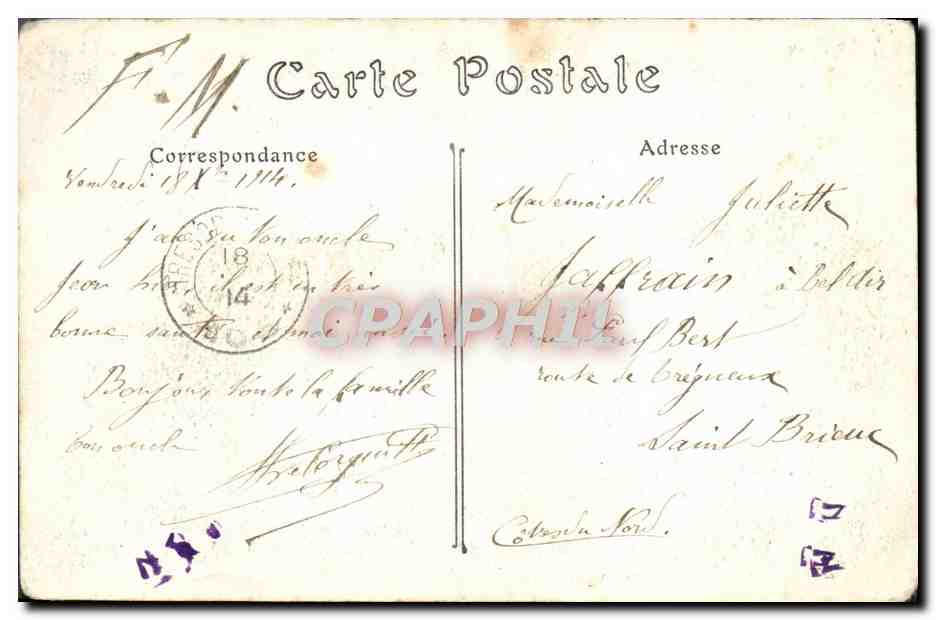 F.M.
Carte Postale
Correspondance
Vendredi 18 Xbre 1914.
J'ai vu ton oncle
Jean hier, il est en très
bonne santé et moi aussi.
Bonjour toute la famille
ton oncle
Adresse
Mademoiselle Juliette
Jaffrain à bel air
rue Paul Bert
route de trégueux
Saint Brieuc
Côtes du Nord.
TRESOR
18
14
CPAPHIL